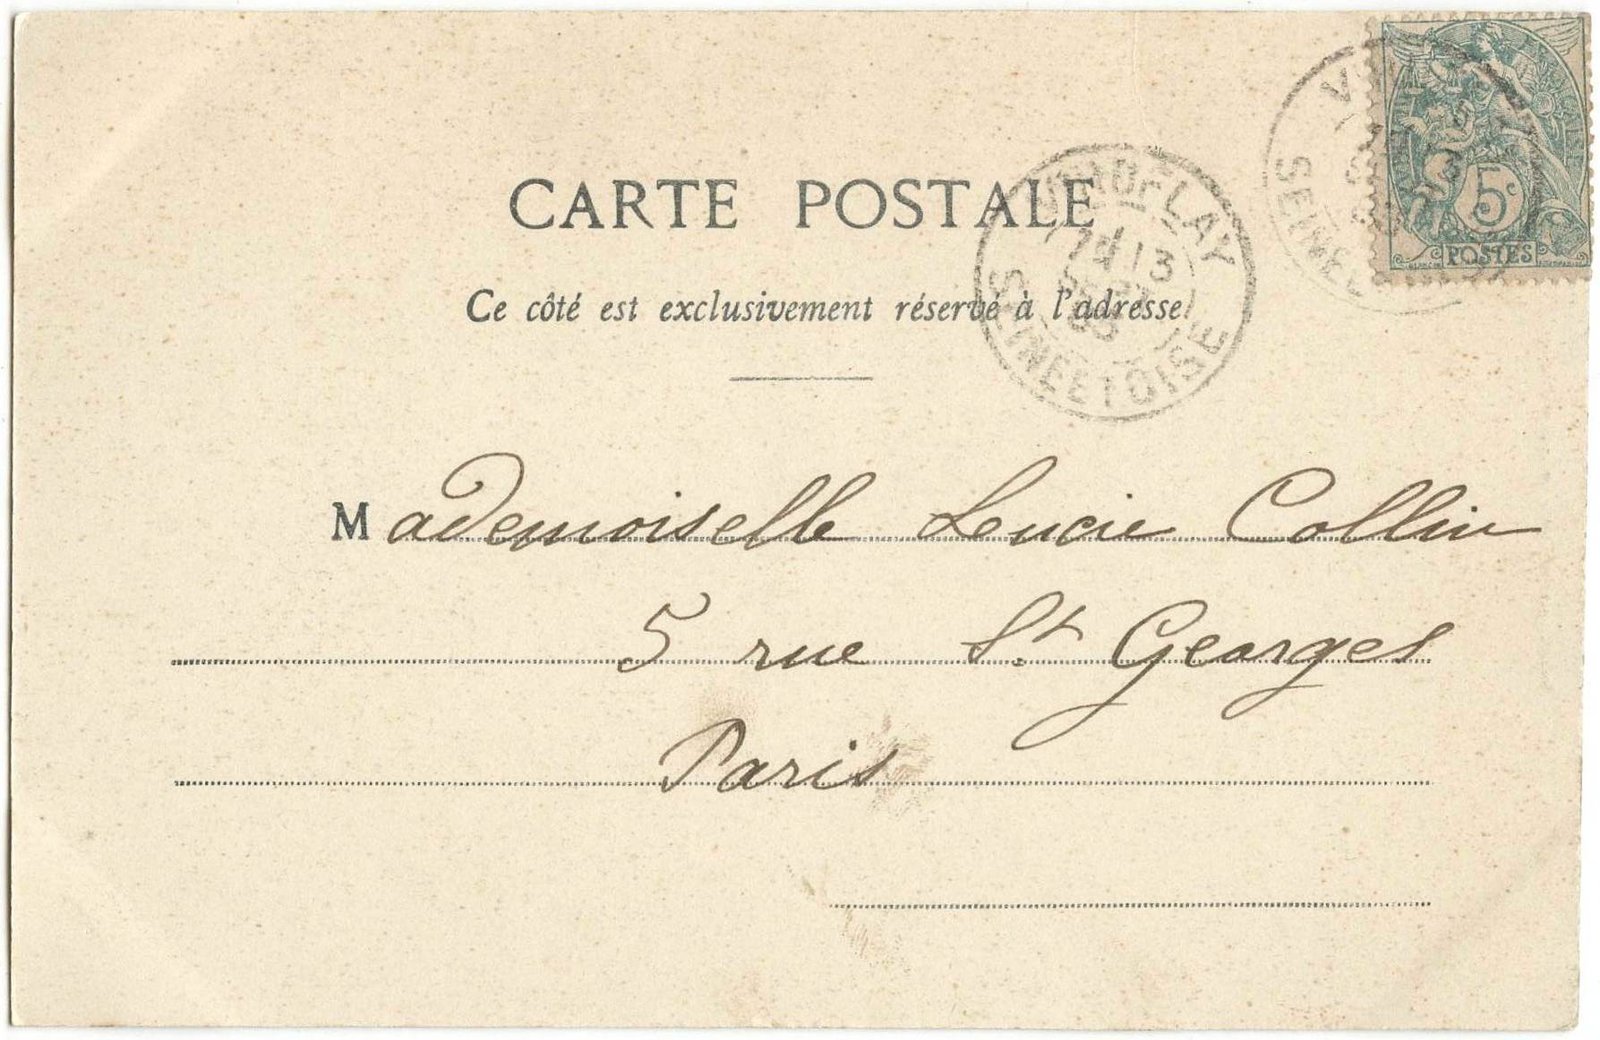 CARTE POSTALE
Ce côté est exclusivement réservé à l'adresse
VIROFLAY
13
SEINE ET OISE
SEINE
5c
POSTES
Mademoiselle Lucie Collin
5 rue St Georges
Paris